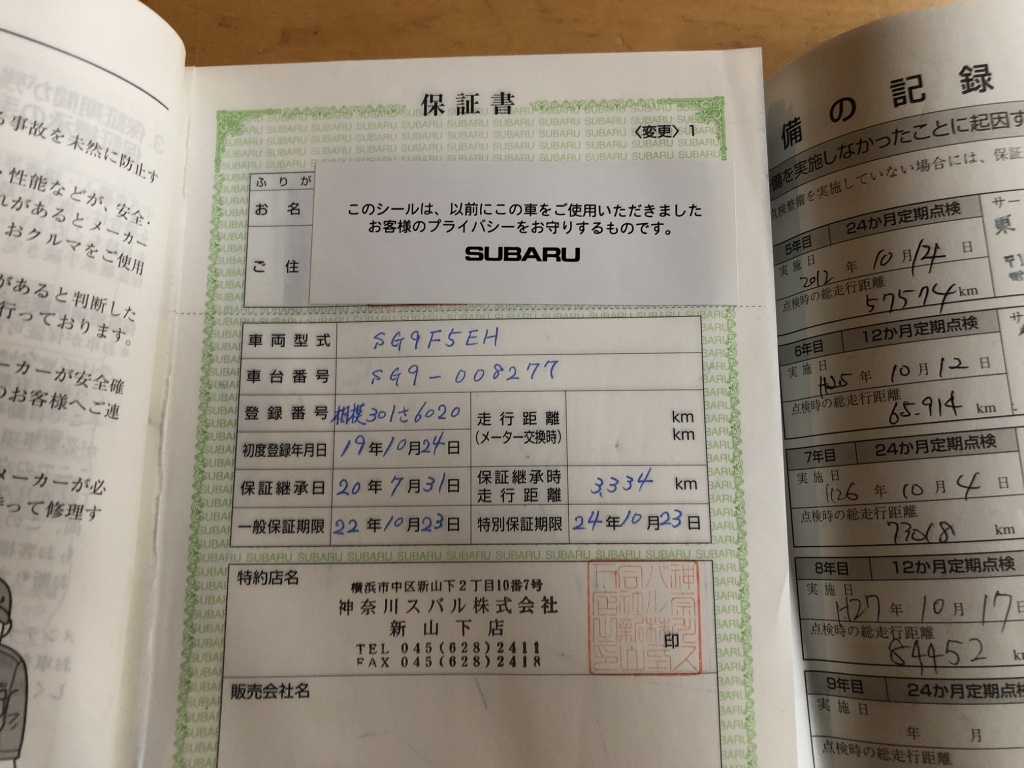 る事故を未然に防止す
・性能などが、安全・
れがあるとメーカー
おクルマをご使用
があると判断した
行っております。
ーカーが安全確
のお客様へご連
メーカーが必
って修理す
保証書
〈変更〉1
ふりが
お名
ご住
このシールは、以前にこの車をご使用いただきました
お客様のプライバシーをお守りするものです。
SUBARU
車両型式 SG9F5EH
車台番号 SG9-008277
登録番号 相模301さ6020
走行距離 km
(メーター交換時) km
初度登録年月日 19年10月24日
保証継承日 20年7月31日
保証継承時
走行距離 3,334 km
一般保証期限 22年10月23日 特別保証期限 24年10月23日
特約店名
横浜市中区新山下2丁目10番7号
神奈川スバル株式会社
新山下店
TEL 045(628)2411
FAX 045(628)2418
印
販売会社名
備の記録
備を実施しなかったことに起因す
点検整備を実施していない場合には、保証
5年目 24か月定期点検
実施日 2012年10月24日
点検時の総走行距離
57574 km
サー
東
6年目 12か月定期点検
実施日 H25年10月12日
点検時の総走行距離
65,914 km
7年目 24か月定期点検
実施日 H26年10月4日
点検時の総走行距離
73018 km
8年目 12か月定期点検
実施日 H27年10月17日
点検時の総走行距離
84452 km
9年目 24か月定期点検
実施日
年 月
点検時の総走行距離